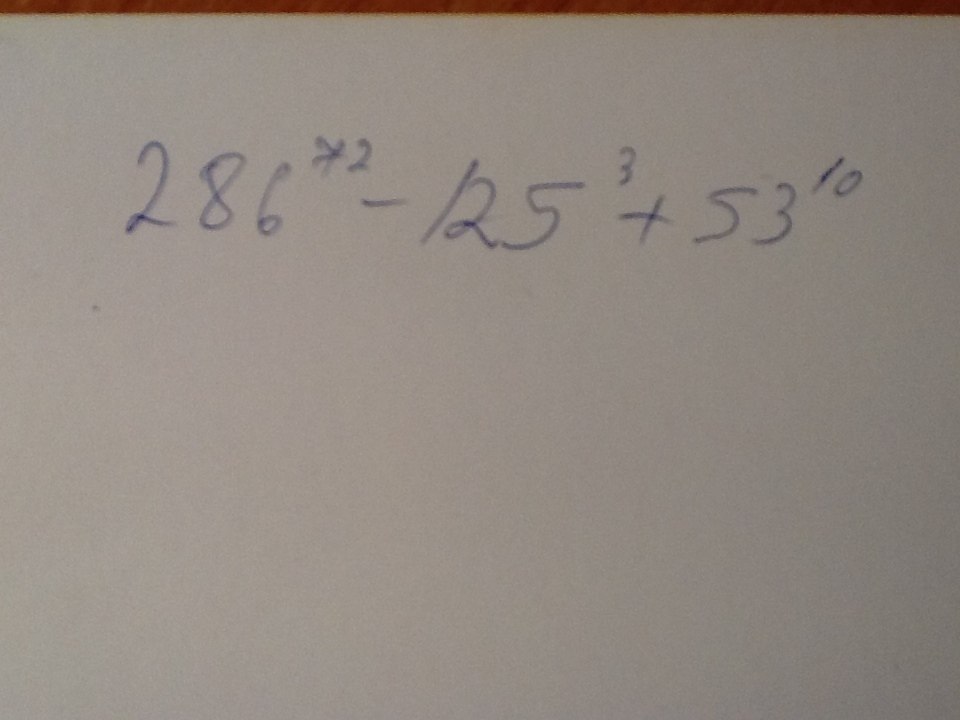 286⁷² - 125³ + 53¹⁰